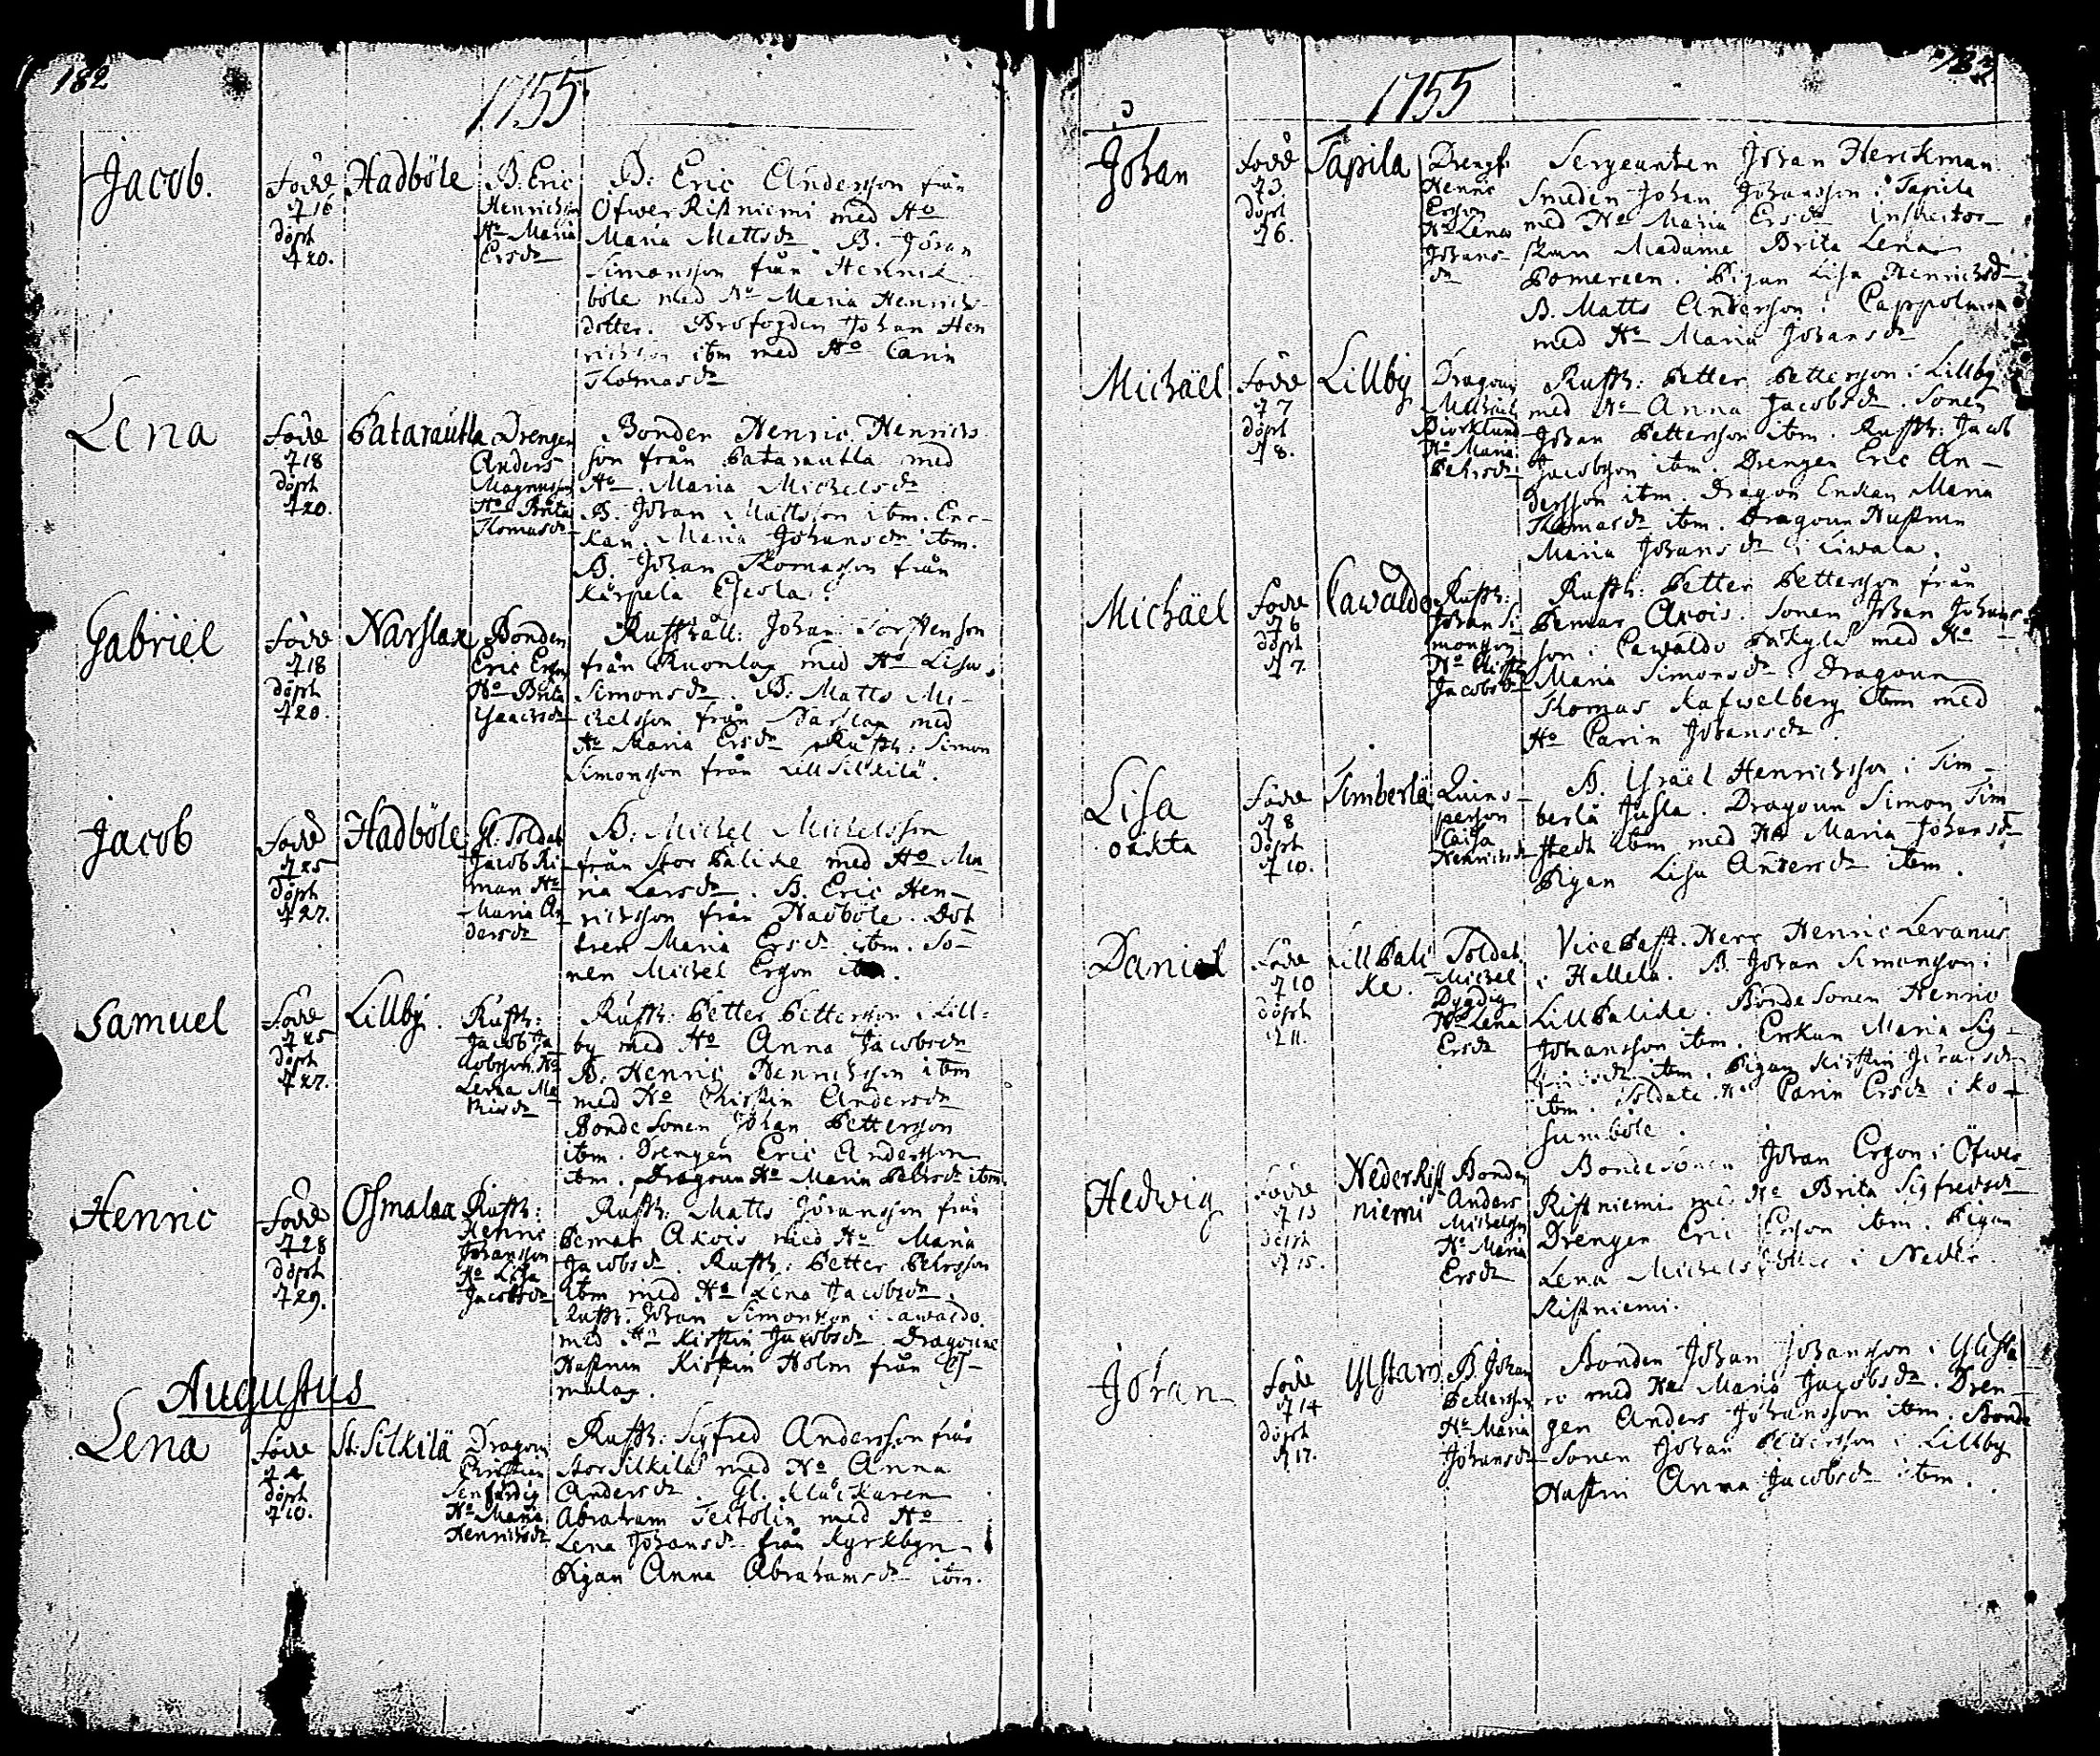 182
1755
Jacob.
Född
d 16
döpt
d 20.
Hadböle
B. Eric
Henrichson
Ho Maria
Ersdr
B: Eric Andersson från
Öfwer Ristniemi med Ho
Maria Mattsdr. B. Johan
Simonsson från Hennik
böle med Ho Maria Henrichs
dotter. Brofogden Johan Hen
richsson ibm med Ho Carin
Thomasdr
Lena
Född
d 18
döpt
d 20.
Patarautla
Drengen
Anders
Magnusson
Ho Brita
Thomasdr
Bonden Henric Henrichs
son från Patarautla med
Ho Maria Michelsdr
B. Johan Mattsson ibm. Enc-
kan Maria Johansdr ibm.
B. Johan Thomasson från
Kärpelä
Gabriel
Född
d 18
döpt
d 20.
Narslax
Bonden
Eric Ersson
Ho Brita
Isaacsdr
Rusthåll: Johan
från med Ho Lisa
Simonsdr. B: Matts Mi-
chelsson från Narslax med
Ho Maria Ersdr Rusth: Simon
Simonsson från Lill Silkilä.
Jacob
Född
d 25
döpt
d 27.
Hadböle
Gl. Soldat
Jacob Ri-
man Ho
Maria An
dersdr
B: Michel Michelsson
från Stor Palicke med Ho Ma
ria Larsdr. B. Eric Hen-
richsson från Hadböle. Dot
tren Maria Ersdr ibm. So-
nen Michel Ersson ibm.
Samuel
Född
d 25
döpt
d 27.
Lillby.
Rusth:
Jacob Ja
cobsson Ho
Lena Ma
thisdr
Rusth: Petter Pettersson i Lill-
by med Ho Anna Jacobsdr
B: Henric Henrichsson ibm
med Ho Christin Andersdr
Bondesonen Johan Pettersson
ibm. Drengen Eric Andersson
ibm. Dragoun Ho Maria Pehrsdr ibm.
Henric
Född
d 28
döpt
d 29.
Osmalax
Rusth:
Henric
Johansson
Ho Lisa
Jacobsdr
Rusth: Matts Johansson från
Pemar Akois med Ho Maria
Jacobsdr. Rusth: Petter Pehrsson
ibm med Ho Lena Jacobsdr.
Rusth: Johan Simonsson i Cawaldo
med Ho Kirstin Jacobsdr. Dragoun
Hustrun Kirstin Holm från Os-
malax.
Augustus
Lena
Född
döpt
d 10.
St. Silkilä
Dragoun
Christian
Senfärdig
Ho Maria
Henrichsdr
Rusth: Sigfred Andersson från
Stor Silkilä med Ho Anna
Andersdr. Gl. Klåckaren
Abraham Teitolin med Ho
Lena Johansdr från Kyrkbyn.
Pigan Anna Abrahamsdr ibm.
1755
Johan
Född
d 3
döpt
d 6.
Tapila
Henric
Ersson
Ho Lena
Johans-
dr
Sergeanten Johan Herckman.
Smeden Johan Johansson i Tapila
med Ho Maria Ersdr Inspector-
skan Madame Brita Lena
Pomereen. Pigan Lisa Henrichsdr
B. Matts Andersson i
med Ho Maria Johansdr
Michäel
Född
d 7
döpt
d 8.
Lillby
Dragoun
Michael
Biorklund
Ho Maria
Pehrsdr
Rusth: Petter Pettersson i Lillby
med Ho Anna Jacobsdr. Sonen
Johan Pettersson ibm. Rusth: Jacob
Jacobsson ibm. Drengen Eric An-
dersson ibm. Dragon Enkan Maria
Thomasdr ibm. Dragoun Hustrun
Maria Johansdr i Liwala.
Michäel
Född
d 6
döpt
d 7.
Cawaldo
Rusth:
Johan Si-
monsson
Ho Christ.
Jacobsdr
Rusth: Petter Pettersson från
Pemar Akois. Sonen Johan Johans-
son i Cawaldo med Ho
Maria Simonsdr. Dragoun
Thomas Kafwelberg ibm med
Ho Carin Johansdr.
Lisa
oäkta
Född
d 8
döpt
d 10.
Timberlä
Quins-
person
Caisa
Henrichsdr
B. Israel Henrichsson i Tim-
berlä. Dragoun Simon Tim
stedt ibm med Ho Maria Johansdr
Pigan Lisa Andersdr ibm.
Daniel
Född
d 10
döpt
d 11.
Lill Pali
ke.
Soldat
Michel
Dygdig
Ho Lena
Ersdr
Vice Past. Herr Henric Levanus
i Hallela. B. Johan Simonsson i
Lill Palicke. Bonde Sonen Henric
Johansson ibm. Enkan Maria Sig-
ibm. Pigan Kirstin Johansdr
ibm. Soldate Ho Carin Ersdr i Ko-
sumböle.
Hedwig
Född
d 13
döpt
d 15.
Neder Rist
niemi
Bonden
Anders
Michelsson
Ho Maria
Ersdr
Bondesonen Johan Ersson i Öfwer
Ristniemi med Ho Brita Sigfredsdr
Drengen Eric Ersson ibm. Pigan
Lena Michelsdotter i Neder
Ristniemi.
Johan
Född
d 14
döpt
d 17.
Ylstaro
B. Johan
Pettersson
Ho Maria
Johansdr
Bonden Johan Johansson i Ylsta
ro med Ho Maria Jacobsdr. Dren-
gen Anders Johansson ibm. Bonde
Sonen Johan Pettersson i Lillby
Hustru Anna Jacobsdr ibm.